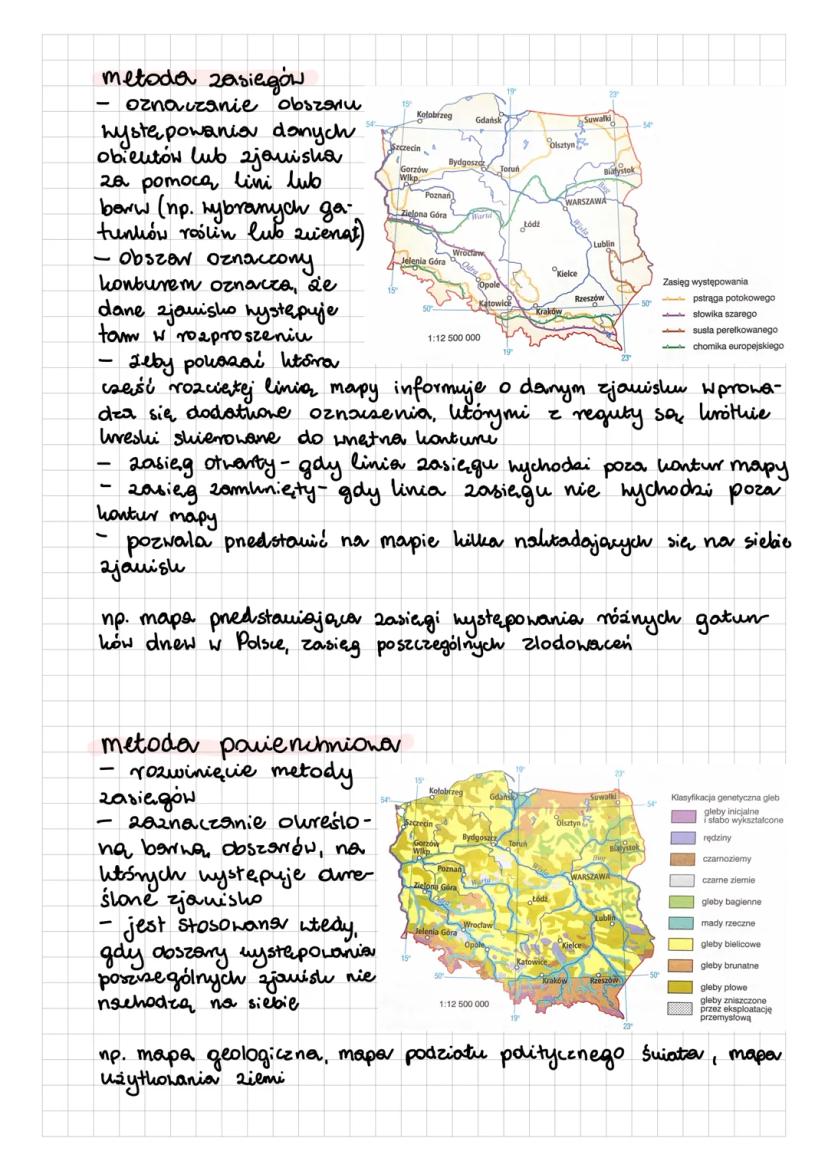 metoda zasięgów
– oznaczanie obszaru
występowania danych
obiektów lub zjawiska
za pomocą lini lub
barw (np. wybranych ga-
tunków roślin lub zwierząt)
– obszar oznaczony
konturem oznacza, że
dane zjawisko występuje
tam w rozproszeniu
– żeby pokazać która
część rozciętej linią mapy informuje o danym zjawisku wprowa-
dza się dodatkowe oznaczenia, którymi z reguły są krótkie
kreski skierowane do wnętrza konturu
– zasięg otwarty – gdy linia zasięgu wychodzi poza kontur mapy
– zasięg zamknięty – gdy linia zasięgu nie wychodzi poza
kontur mapy
– pozwala przedstawić na mapie kilka nakładających się na siebie
zjawisk
15°
19°
23°
54°
54°
Kołobrzeg
Gdańsk
Suwałki
Szczecin
Olsztyn
Bydgoszcz
Toruń
Białystok
Gorzów
Wlkp.
Poznań
Warta
WARSZAWA
Bug
Zielona Góra
Łódź
Wisła
Wrocław
Lublin
Jelenia Góra
Odra
Opole
Kielce
Katowice
Rzeszów
Kraków
15°
50°
50°
19°
23°
1:12 500 000
Zasięg występowania
pstrąga potokowego
słowika szarego
susła perełkowanego
chomika europejskiego
np. mapa przedstawiająca zasięgi występowania różnych gatun-
ków drzew w Polsce, zasięg poszczególnych zlodowaceń
metoda powierzchniowa
– rozwinięcie metody
zasięgów
– zaznaczanie określo-
ną barwą obszarów, na
których występuje okre-
ślone zjawisko
– jest stosowana wtedy,
gdy obszary występowania
poszczególnych zjawisk nie
nachodzą na siebie
15°
19°
23°
54°
54°
Kołobrzeg
Gdańsk
Suwałki
Szczecin
Olsztyn
Bydgoszcz
Toruń
Białystok
Gorzów
Wlkp.
Poznań
Warta
Wisła
Bug
WARSZAWA
Zielona Góra
Odra
Łódź
Lublin
Wrocław
Jelenia Góra
Opole
Kielce
Katowice
Kraków
Rzeszów
15°
50°
50°
19°
23°
1:12 500 000
Klasyfikacja genetyczna gleb
gleby inicjalne
i słabo wykształcone
rędziny
czarnoziemy
czarne ziemie
gleby bagienne
mady rzeczne
gleby bielicowe
gleby brunatne
gleby płowe
gleby zniszczone
przez eksploatację
przemysłową
np. mapa geologiczna, mapa podziału politycznego świata, mapa
użytkowania ziemi